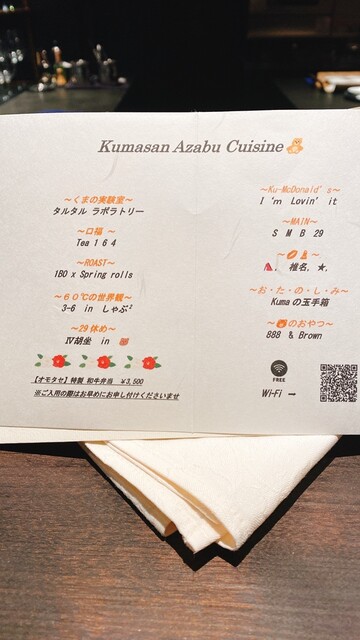 Kumasan Azabu Cuisine
～くまの実験室～
タルタル ラボラトリー
～口福 ～
Tea 1 6 4
～ROAST～
IBO x Spring rolls
～６０℃の世界観～
3-6 in しゃぶ²
～29 休め～
Ⅳ胡坐 in
【オモタセ】特製 和牛弁当 ¥3,500
※ご入用の際はお早めにお申し付けくださいませ
～Ku-McDonald's～
I 'm Lovin' it
～MAIN～
S M B 29
椎名, ★,
～お・た・の・し・み～
Kumaの玉手箱
～のおやつ～
888 & Brown
FREE
Wi-Fi →